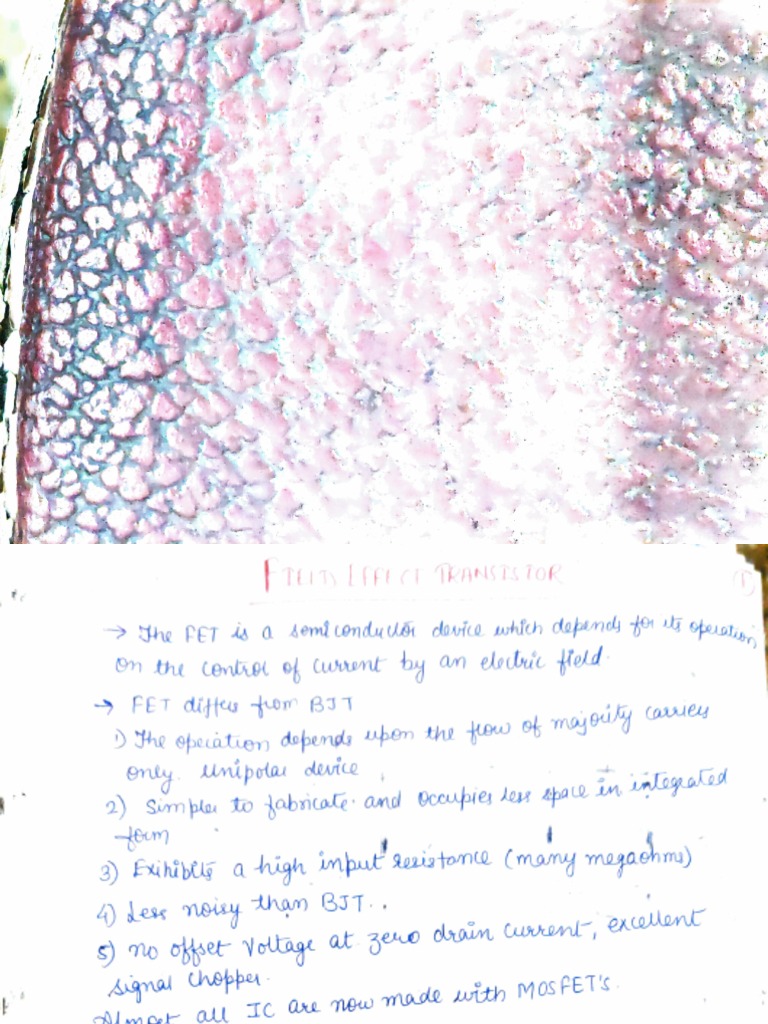 FIELD EFFECT TRANSISTOR
(1)
→ The FET is a semiconductor device which depends for its operation
on the control of current by an electric field.
→ FET differs from BJT
1) The operation depends upon the flow of majority carriers
only. Unipolar device
2) Simpler to fabricate and occupies less space in integrated
form
3) Exhibits a high input resistance (many megaohms)
4) Less noisy than BJT.
5) no offset voltage at zero drain current, excellent
signal chopper.
Almost all IC are now made with MOSFET's.